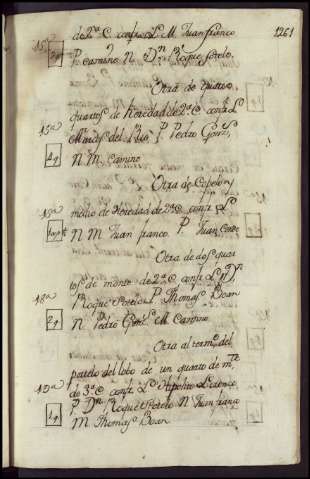 1261
de 2ª C confr. L. M. Juan franco
15ª P. camino N. Dn. Roque sotelo.
2q
Otra de
quartos de Heredad de 2ª C confr. L.
15ª del Rio, P. Pedro Gonz.
2q N M Camino
Otra de Copelo y
15ª medio de Heredad de 2ª C confr. L.
N M Juan franco P. Juan
Otra de dos quar
tos de monte de 2ª C confr. L. n Dn.
18ª Roque Sotelo P. Thomas Boan
2q N. Pedro Gonz. M. Camino
Otra al term. del
portelo del lobo de un quarto de mte
19ª de 3ª C confr. L. Hipolito
1q P. Dn. Roque Sotelo N Juan franco
M Thomas Boan